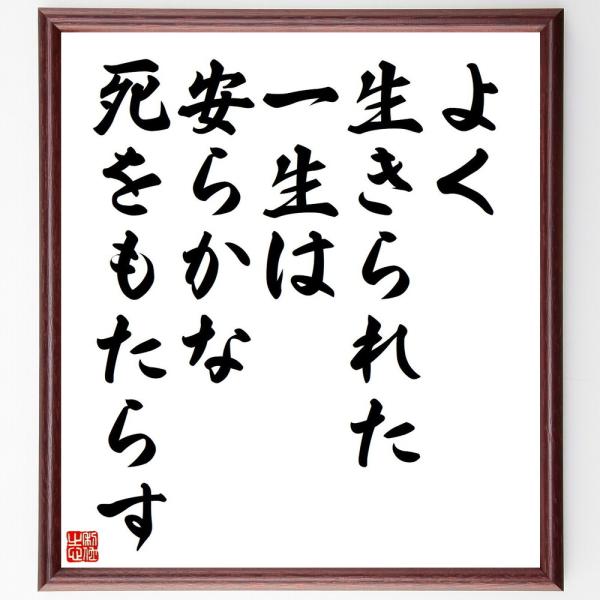 よく
生きられた
一生は
安らかな
死をもたらす